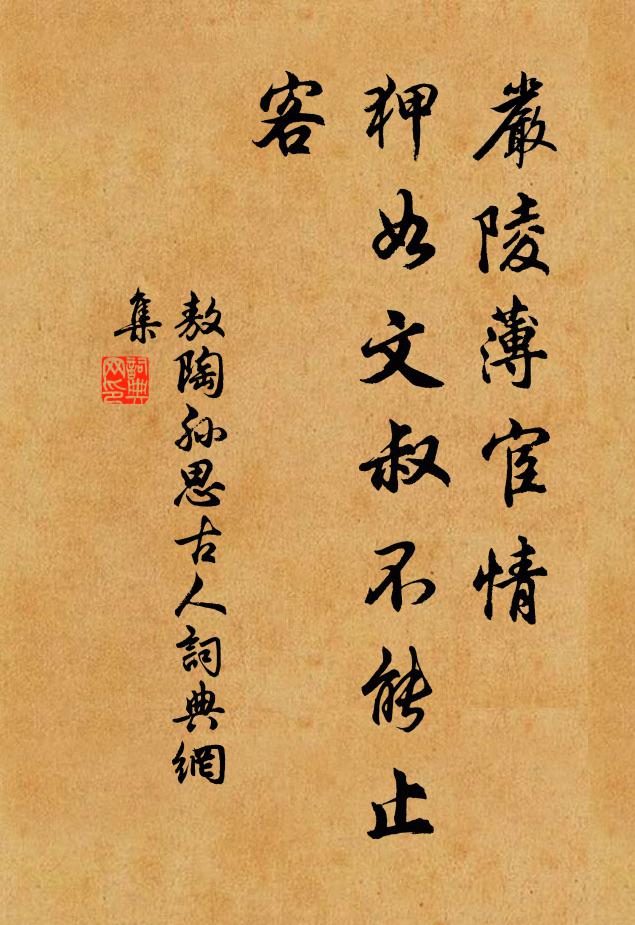 嚴陵薄宦情
狎如文叔不能止
客
敖陶孫思古人詞典網
集
詞典网印